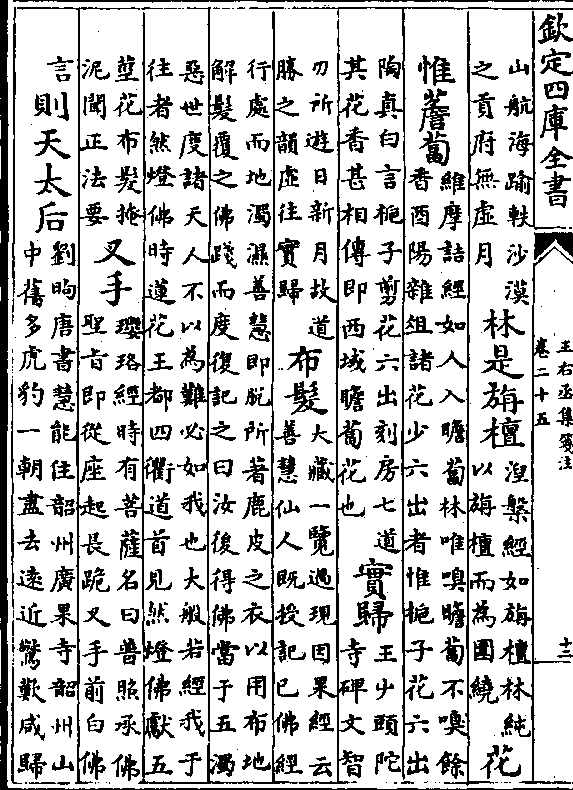 欽定四庫全書
王右丞集箋注
卷二十五
十二
山航海踰軼沙漠
之貢府無虛月
林是旃檀
涅槃經如旃檀林純
以旃檀而為圍繞
花
惟薝蔔
維摩詰經如人入瞻蔔林唯嗅瞻蔔不嗅餘
香酉陽雜俎諸花少六出者惟梔子花六出
陶真白言梔子剪花六出刻房七道
其花香甚相傳即西域瞻蔔花也
實歸
王屮頭陀
寺碑文智
刃所遊日新月故道
勝之韻虛往實歸
布髮
大藏一覽過現因果經云
善慧仙人既授記已佛經
行處而地濁濕善慧即脫所著鹿皮之衣以用布地
解髮覆之佛踐而度復記之曰汝後得佛當于五濁
惡世度諸天人不以為難必如我也大般若經我于
往者然燈佛時蓮花王都四衢道首見然燈佛獻五
莖花布髮掩
泥聞正法要
叉手
瓔珞經時有菩薩名曰普照承佛
聖旨即從座起長跪叉手前白佛
言
則天太后
劉昫唐書慧能住韶州廣果寺韶州山
中舊多虎豹一朝盡去遠近驚歎咸歸